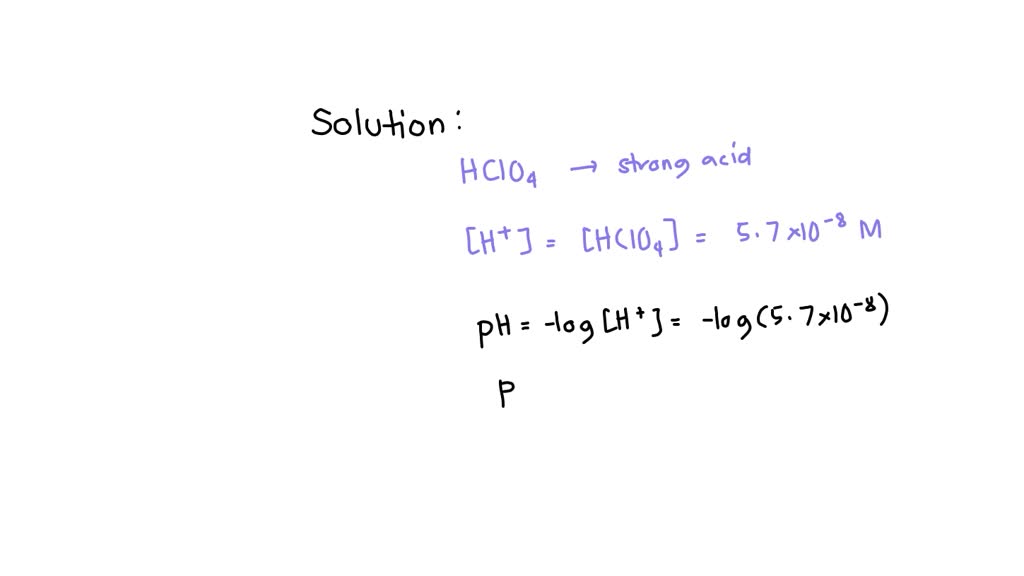 Solution:
HClO₄ → strong acid
[H⁺] = [HClO₄] = 5.7×10⁻⁸ M
pH = -log[H⁺] = -log(5.7×10⁻⁸)
p